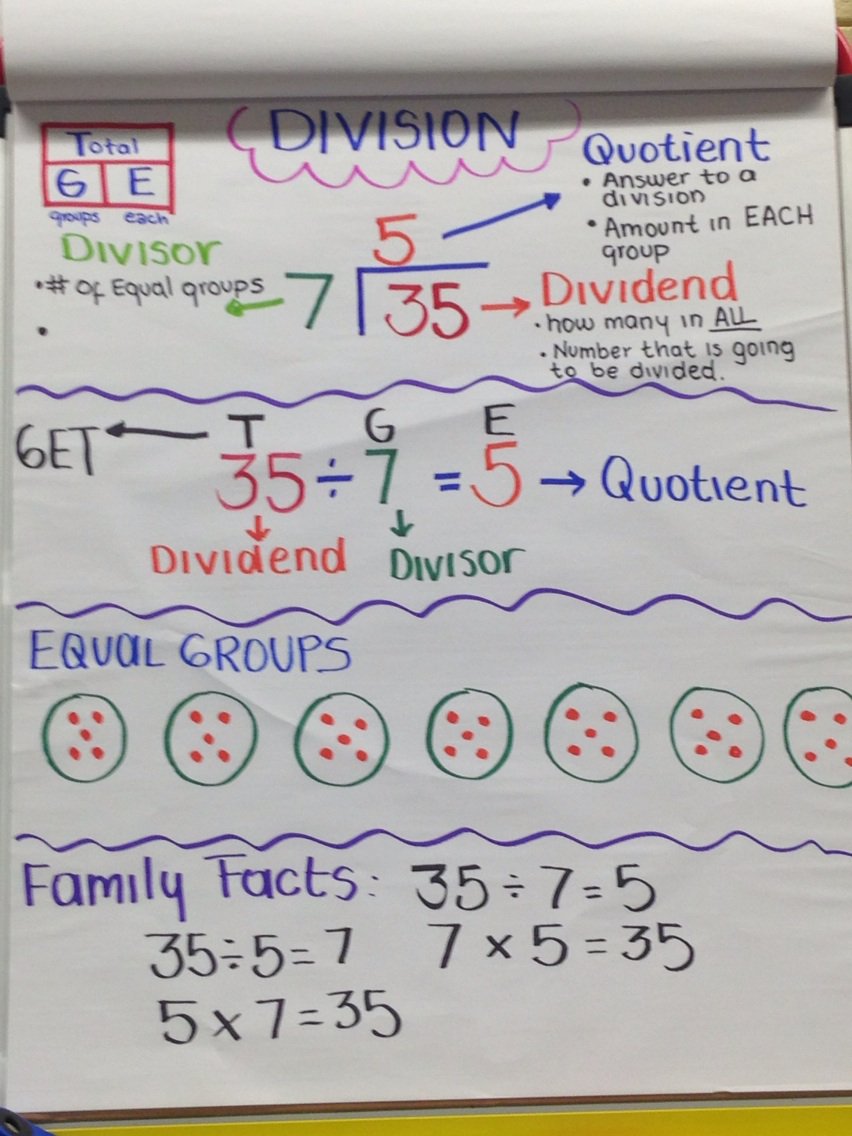 DIVISION
Total
G E
groups each
Quotient
• Answer to a
division
• Amount in EACH
group
Divisor
• # of Equal groups
•
5
7 35
Dividend
• how many in ALL
• Number that is going
to be divided.
GET
T G E
35 ÷ 7 = 5 → Quotient
Dividend Divisor
EQUAL GROUPS
Family Facts: 35 ÷ 7 = 5
35 ÷ 5 = 7 7 × 5 = 35
5 × 7 = 35